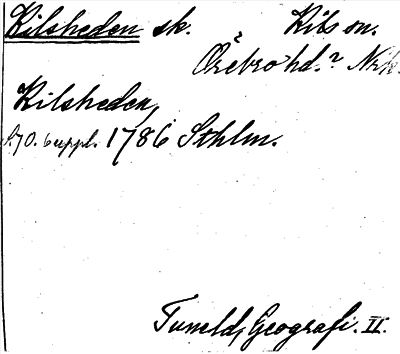 Kilsheden sk. Kils sn.
Örebro hd.? Nrk.
Kilsheden,
s.70. 6 uppl. 1786 Sthlm.
Tuneld, Geografi. II.